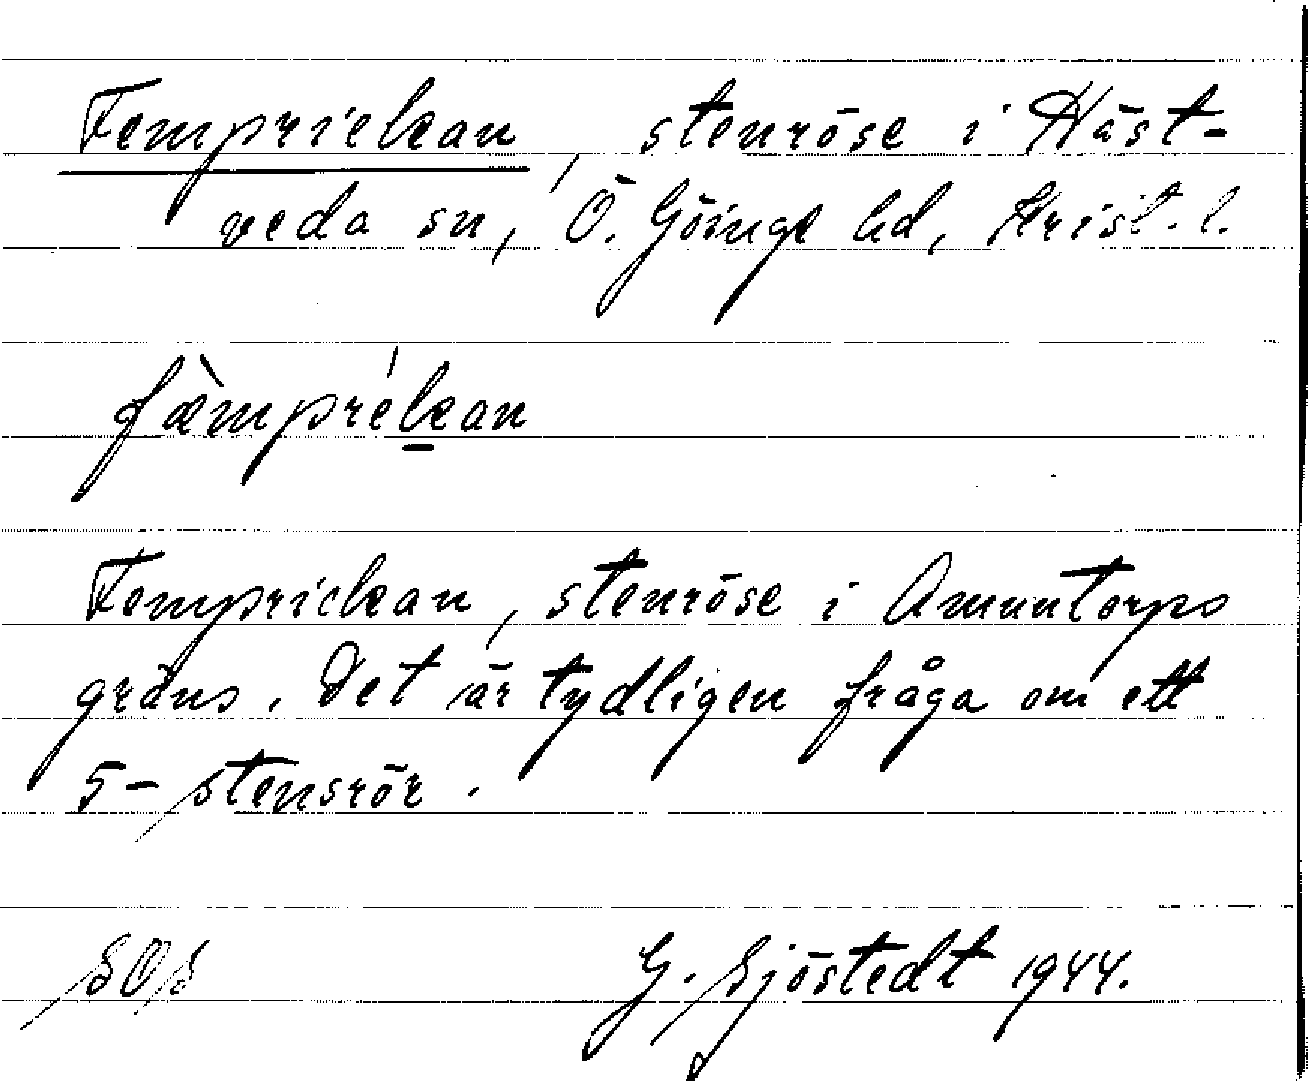 Femprickan, stenröse i Häst-
veda sn, Ö. Göinge hd, Krist. l.
fæ̀mprékan
Femprickan, stenröse i Amuntorps
gräns. Det är tydligen fråga om ett
5-stensrör.
SOS G. Sjöstedt 1944.